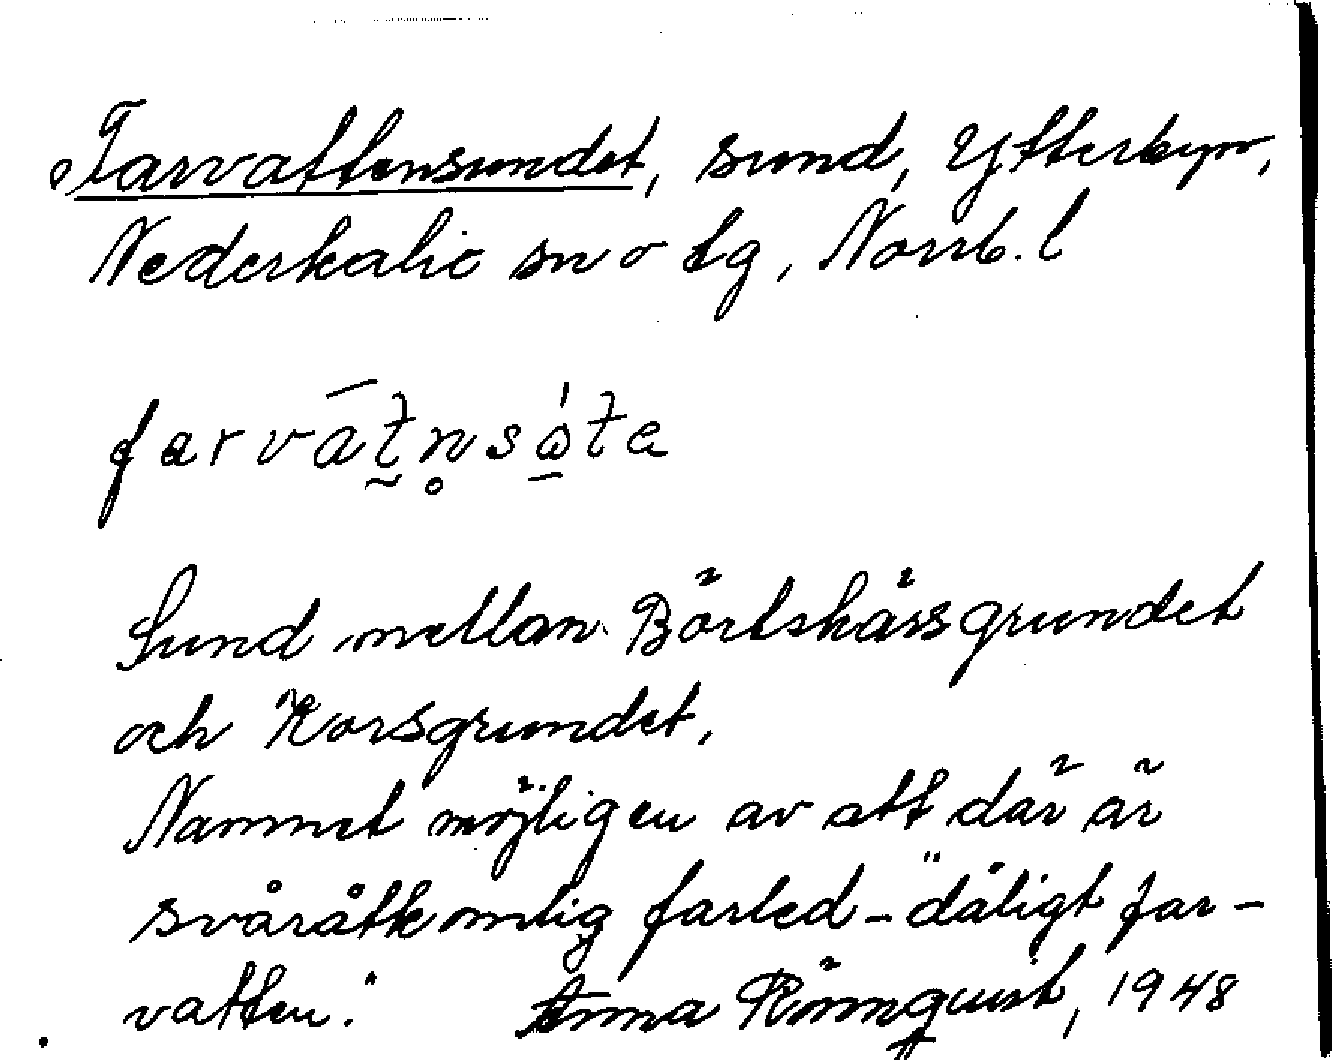 Farvattensundet, sund, Ytterbyn,
Nederkalix sn o tg, Norrb. l
farvātn̥sǻ̱ta
Sund mellan Börtskärsgrundet
och Korsgrundet.
Namnet möjligen av att där är
svåråtkomlig farled - "dåligt far-
vatten."   Anna Rönnquist, 1948